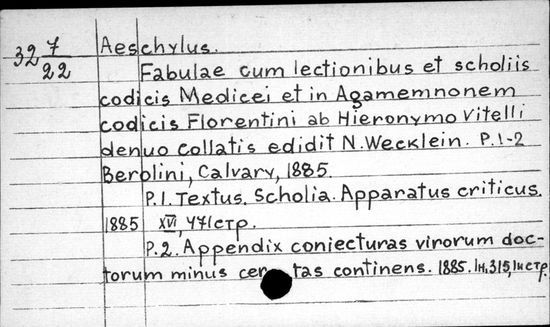 32 7/22
Aeschylus.
Fabulae cum lectionibus et scholiis
codicis Medicei et in Agamemnonem
codicis Florentini ab Hieronymo Vitelli
denuo collatis edidit N. Wecklein. P.1-2
Berolini, Calvary, 1885.
P.1. Textus. Scholia. Apparatus criticus.
1885 XVI, 471 стр.
P.2. Appendix coniecturas virorum doc-
torum minus cer tas continens. 1885. 1н. 315, 1н стр.